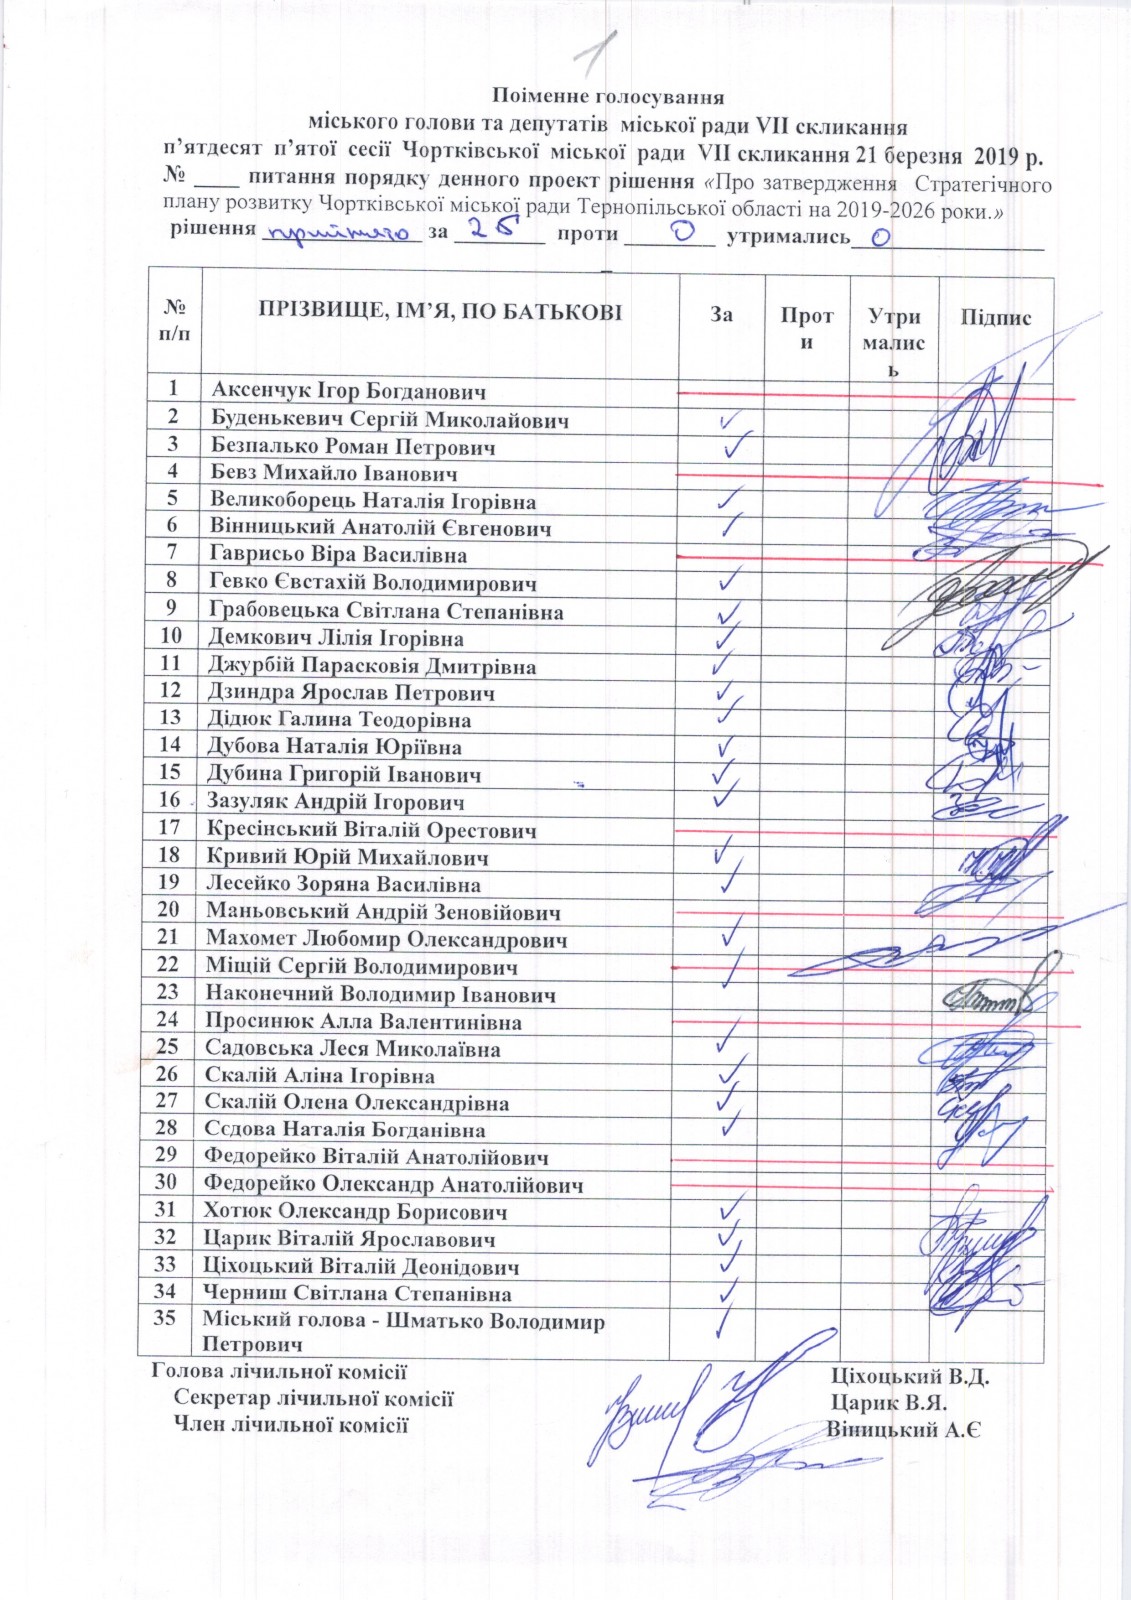 1
Поіменне голосування
міського голови та депутатів міської ради VII скликання
п’ятдесят п’ятої сесії Чортківської міської ради VII скликання 21 березня 2019 р.
№ ____ питання порядку денного проект рішення «Про затвердження Стратегічного
плану розвитку Чортківської міської ради Тернопільської області на 2019-2026 роки.»
рішення прийнято за 26 проти 0 утримались 0
№ п/п ПРІЗВИЩЕ, ІМ’Я, ПО БАТЬКОВІ За Проти Утрималис
ь Підпис
1 Аксенчук Ігор Богданович
2 Буденькевич Сергій Миколайович ✓
3 Безпалько Роман Петрович ✓
4 Бевз Михайло Іванович
5 Великоборець Наталія Ігорівна ✓
6 Вінницький Анатолій Євгенович ✓
7 Гаврисьо Віра Василівна
8 Гевко Євстахій Володимирович ✓
9 Грабовецька Світлана Степанівна ✓
10 Демкович Лілія Ігорівна ✓
11 Джурбій Парасковія Дмитрівна ✓
12 Дзиндра Ярослав Петрович ✓
13 Дідюк Галина Теодорівна ✓
14 Дубова Наталія Юріївна ✓
15 Дубина Григорій Іванович ✓
16 Зазуляк Андрій Ігорович ✓
17 Кресінський Віталій Орестович
18 Кривий Юрій Михайлович ✓
19 Лесейко Зоряна Василівна ✓
20 Маньовський Андрій Зеновійович
21 Махомет Любомир Олександрович ✓
22 Міщій Сергій Володимирович
23 Наконечний Володимир Іванович ✓
24 Просинюк Алла Валентинівна
25 Садовська Леся Миколаївна ✓
26 Скалій Аліна Ігорівна ✓
27 Скалій Олена Олександрівна ✓
28 Сєдова Наталія Богданівна ✓
29 Федорейко Віталій Анатолійович
30 Федорейко Олександр Анатолійович
31 Хотюк Олександр Борисович ✓
32 Царик Віталій Ярославович ✓
33 Ціхоцький Віталій Деонідович ✓
34 Черниш Світлана Степанівна ✓
35 Міський голова - Шматько Володимир
Петрович ✓
Голова лічильної комісії Ціхоцький В.Д.
Секретар лічильної комісії Царик В.Я.
Член лічильної комісії Віницький А.Є